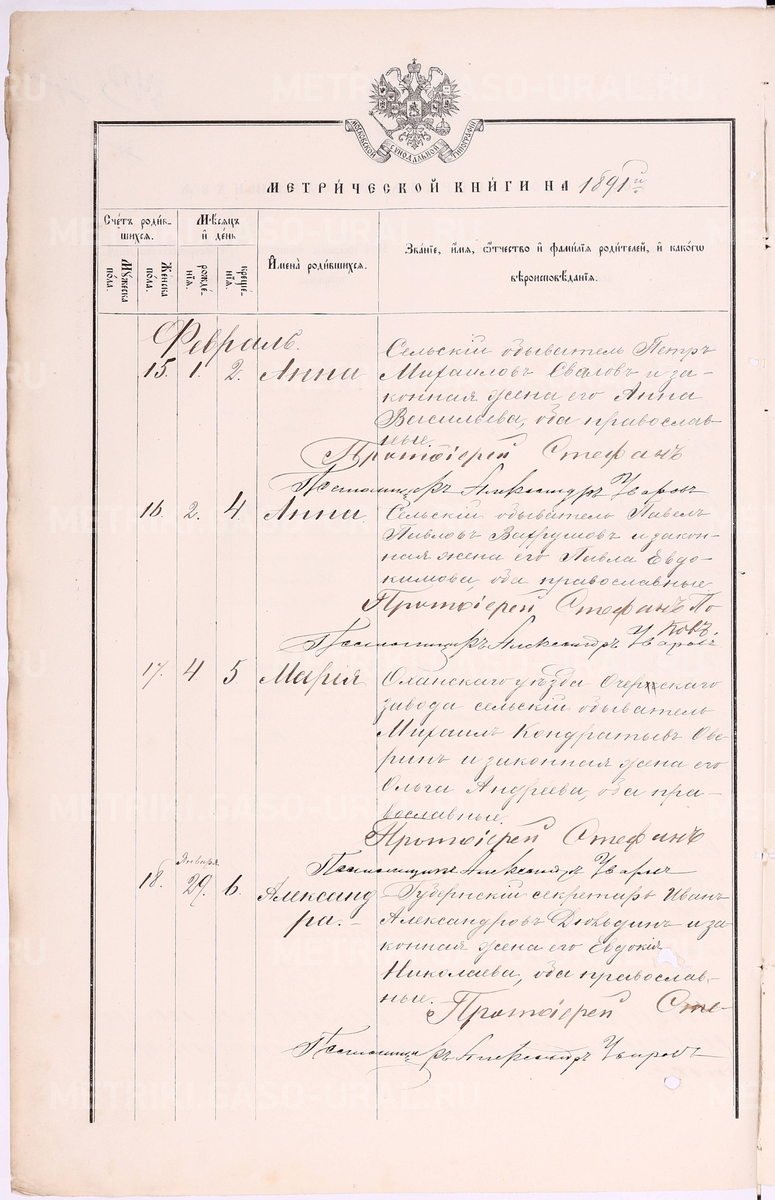 METRIKI.GASO-URAL.RU
МОСКОВСКОЙ СѴНОДАЛЬНОЙ ТИПОГРАФІИ
МЕТРИ́ЧЕСКОЙ КНИ́ГИ НА 1891й
Сче́тъ роди́в-
шихся.
Мѣсяцъ
и де́нь
Имена̀ роди́вшихся.
Зва́нїе, и́мя, ѻ́тчество и фами́лїя роди́телей, и како́гѡ
вѣроисповѣ́данїя.
Мꙋ́жеска
по́ла.
Же́нска
по́ла.
рожде́-
нїя.
креще́-
нїя.
Февраль.
Сельскій обыватель Петръ
15. 1. 2. Анна Михаиловъ Свалов и за-
конная жена его Анна
Васильева, оба православ-
ные.
Протоіерей Стефанъ
Псаломщикъ Александръ Уваровъ
16. 2. 4. Анна Сельскій обыватель Павелъ
Павловъ Вахрушовъ и закон-
ная жена его Павла Евдо-
кимова, оба православные.
Протоіерей Стефанъ По
ковъ.
Псаломщикъ Александръ Уваровъ
17. 4 5 Марія Оханскаго уѣзда Очерскаго
завода сельскій обыватель
Михаилъ Кондратьевъ Ове-
ринъ и законная жена его
Ольга Андреева, оба пра-
вославные.
Протоіерей Стефанъ
Псаломщикъ Александръ Уваровъ
Января
18. 29. 6. Александ Губернскій секретарь Иванъ
ра. Александровъ и за
конная жена его Евдокія
Николаева, оба православ-
ные.
Протоіерей Сте-
Псаломщикъ Александръ Уваровъ